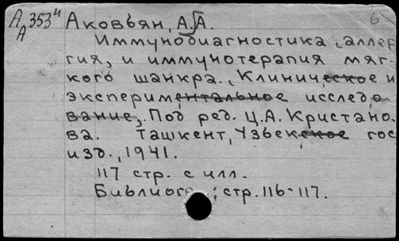 А 353и Аковьян, А.А. 6
А
Иммунодиагностика, аллер
гия, и иммунотерапия мяг-
кого шанкра. Клиническое и
экспериментальное исследо
вание. Под ред. Ц.А. Кристано-
ва. Ташкент, Узбекское гос
изд., 1941.
117 стр. с илл.
Библиогр.: стр. 116-117.